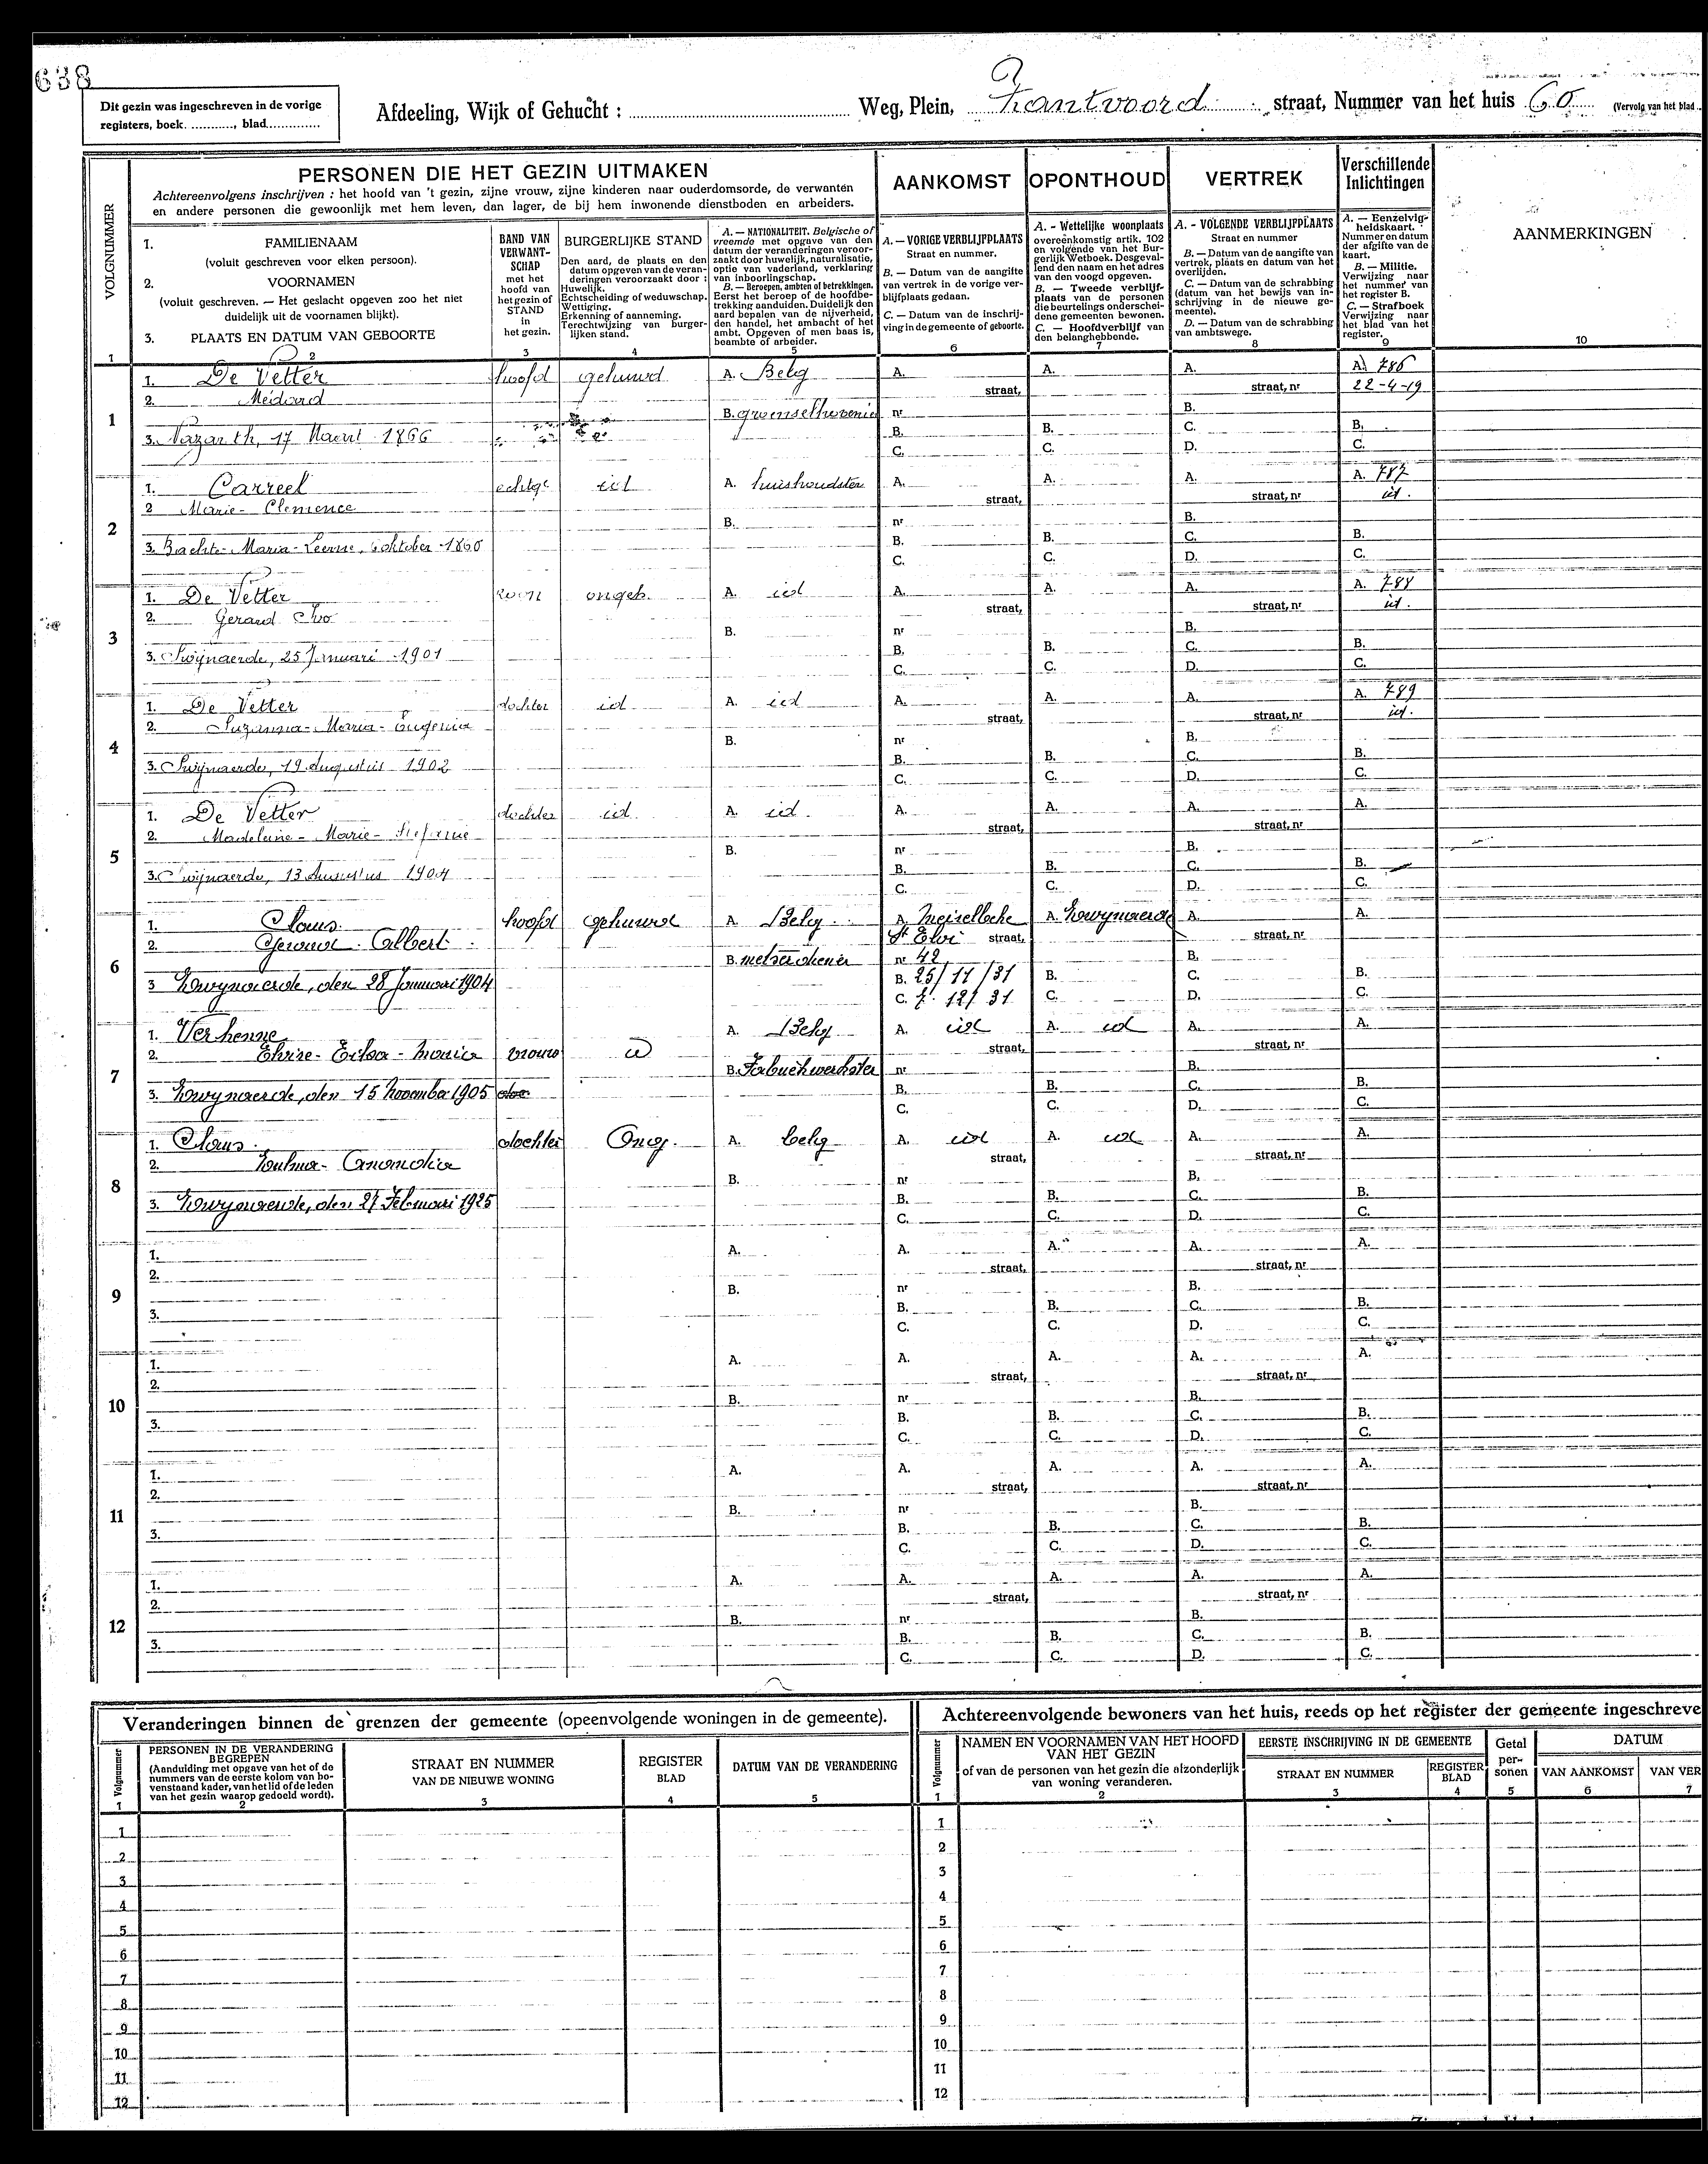 638
Dit gezin was ingeschreven in de vorige
registers, boek. ..........., blad..............
Afdeeling, Wijk of Gehucht : .............. Weg, Plein, Zantvoord straat, Nummer van het huis 60 (Vervolg van het blad
VOLGNUMMER
PERSONEN DIE HET GEZIN UITMAKEN
Achtereenvolgens inschrijven : het hoofd van 't gezin, zijne vrouw, zijne kinderen naar ouderdomsorde, de verwanten
en andere personen die gewoonlijk met hem leven, dan lager, de bij hem inwonende dienstboden en arbeiders.
AANKOMST
OPONTHOUD
VERTREK
Verschillende
Inlichtingen
1. FAMILIENAAM
(voluit geschreven voor elken persoon).
2. VOORNAMEN
(voluit geschreven. — Het geslacht opgeven zoo het niet
duidelijk uit de voornamen blijkt).
3. PLAATS EN DATUM VAN GEBOORTE
BAND VAN
VERWANT-
SCHAP
met het
hoofd van
het gezin of
STAND
in
het gezin.
BURGERLIJKE STAND
Den aard, de plaats en den
datum opgeven van de veran-
deringen veroorzaakt door :
Huwelijk.
Echtscheiding of weduwschap.
Wettiging.
Erkenning of aanneming.
Terechtwijzing van burger-
lijken stand.
A. — NATIONALITEIT. Belgische of
vreemde met opgave van den
datum der veranderingen veroor-
zaakt door huwelijk, naturalisatie,
optie van vaderland, verklaring
van inboorlingschap.
B. — Beroepen, ambten of betrekkingen.
Eerst het beroep of de hoofdbe-
trekking aanduiden. Duidelijk den
aard bepalen van de nijverheid,
den handel, het ambacht of het
ambt. Opgeven of men baas is,
beambte of arbeider.
A. — VORIGE VERBLIJFPLAATS
Straat en nummer.
B. — Datum van de aangifte
van vertrek in de vorige ver-
blijfplaats gedaan.
C. — Datum van de inschrij-
ving in de gemeente of geboorte.
A. - Wettelijke woonplaats
overeenkomstig artik. 102
en volgende van het Bur-
gerlijk Wetboek. Desgeval-
lend den naam en het adres
van den voogd opgeven.
B. — Tweede verblijf-
plaats van de personen
die beurtelings onderschei-
dene gemeenten bewonen.
C. — Hoofdverblijf van
den belanghebbende.
A. - VOLGENDE VERBLIJFPLAATS
Straat en nummer
B. — Datum van de aangifte van
vertrek, plaats en datum van het
overlijden.
C. — Datum van de schrabbing
(datum van het bewijs van in-
schrijving in de nieuwe ge-
meente).
D. — Datum van de schrabbing
van ambtswege.
A. — Eenzelvig-
heidskaart.
Nummer en datum
der afgifte van de
kaart.
B. — Militie.
Verwijzing naar
het nummer van
het register B.
C. — Strafboek
Verwijzing naar
het blad van het
register.
AANMERKINGEN
1 2 3 4 5 6 7 8 9 10
1
1. De Vetter hoofd gehuwd A. Belg A. straat, A. A. straat, nr A. 786
2. Médard 22-4-19
B. groenselhovenier nr B.
3. Nazareth, 17 Maart 1866 B. C. B. C. C. D. B. C.
2
1. Carreel echtge id A. huishoudster A. straat, A. A. straat, nr A. 787
2 Marie-Clemence id.
B. nr B.
3. Bachte-Maria-Leerne, oktober 1860 B. C. B. C. C. D. B. C.
3
1. De Vetter zoon ongeh. A. id A. straat, A. A. straat, nr A. 788
2. Gerard Ivo id.
B. nr B.
3. Swijnaerde, 25 Januari 1901 B. C. B. C. C. D. B. C.
4
1. De Vetter dochter id A. id A. straat, A. A. straat, nr A. 789
2. Suzanna-Maria-Eugenia id.
B. nr B.
3. Swijnaerde, 19 Augustus 1902 B. C. B. C. C. D. B. C.
5
1. De Vetter dochter id A. id. A. straat, A. A. straat, nr A.
2. Madeleine-Marie-Stefanie
B. nr B.
3. Swijnaerde, 13 Augustus 1904 B. C. B. C. C. D. B. C.
6
1. Claus. hoofd gehuwd A. Belg A. Meirelbeke A. Zwynaerde A. A.
2. Gerard Albert St Eloi straat, straat, nr
B. nr 42 B.
3 Zwynaerde, den 28 Januari 1904 B. 25/11/31 B. C. B.
C. 7. 12/31 C. D. C.
7
1. Verhenne A. Belg A. id A. id A. A.
2. vrouw id straat, straat, nr
B. Fabriekwerkster nr B.
3. Zwynaerde, den 15 November 1905 B. C. B. C. C. D. B. C.
8
1. Claus. dochter Ong. A. belg A. id A. id A. A.
2. Zulma- straat, straat, nr
B. nr B.
3. Zwynaerde, den 27 Februari 1925 B. C. B. C. C. D. B. C.
9
1. A. A. A. A. A.
2. straat, straat, nr
B. nr B.
3. B. B. C. B.
C. C. D. C.
10
1. A. A. A. A. A.
2. straat, straat, nr
B. nr B.
3. B. B. C. B.
C. C. D. C.
11
1. A. A. A. A. A.
2. straat, straat, nr
B. nr B.
3. B. B. C. B.
C. C. D. C.
12
1. A. A. A. A. A.
2. straat, straat, nr
B. nr B.
3. B. B. C. B.
C. C. D. C.
Veranderingen binnen de grenzen der gemeente (opeenvolgende woningen in de gemeente).
Volgnummer
PERSONEN IN DE VERANDERING
BEGREPEN
(Aanduiding met opgave van het of de
nummers van de eerste kolom van bo-
venstaand kader, van het lid of de leden
van het gezin waarop gedoeld wordt).
STRAAT EN NUMMER
VAN DE NIEUWE WONING
REGISTER
BLAD
DATUM VAN DE VERANDERING
1 2 3 4 5
1
2
3
4
5
6
7
8
9
10
11
12
Achtereenvolgende bewoners van het huis, reeds op het register der gemeente ingeschreve
Volgnummer
NAMEN EN VOORNAMEN VAN HET HOOFD
VAN HET GEZIN
of van de personen van het gezin die afzonderlijk
van woning veranderen.
EERSTE INSCHRIJVING IN DE GEMEENTE
STRAAT EN NUMMER
REGISTER
BLAD
Getal
per-
sonen
DATUM
VAN AANKOMST
VAN VER
1 2 3 4 5 6 7
1
2
3
4
5
6
7
8
9
10
11
12